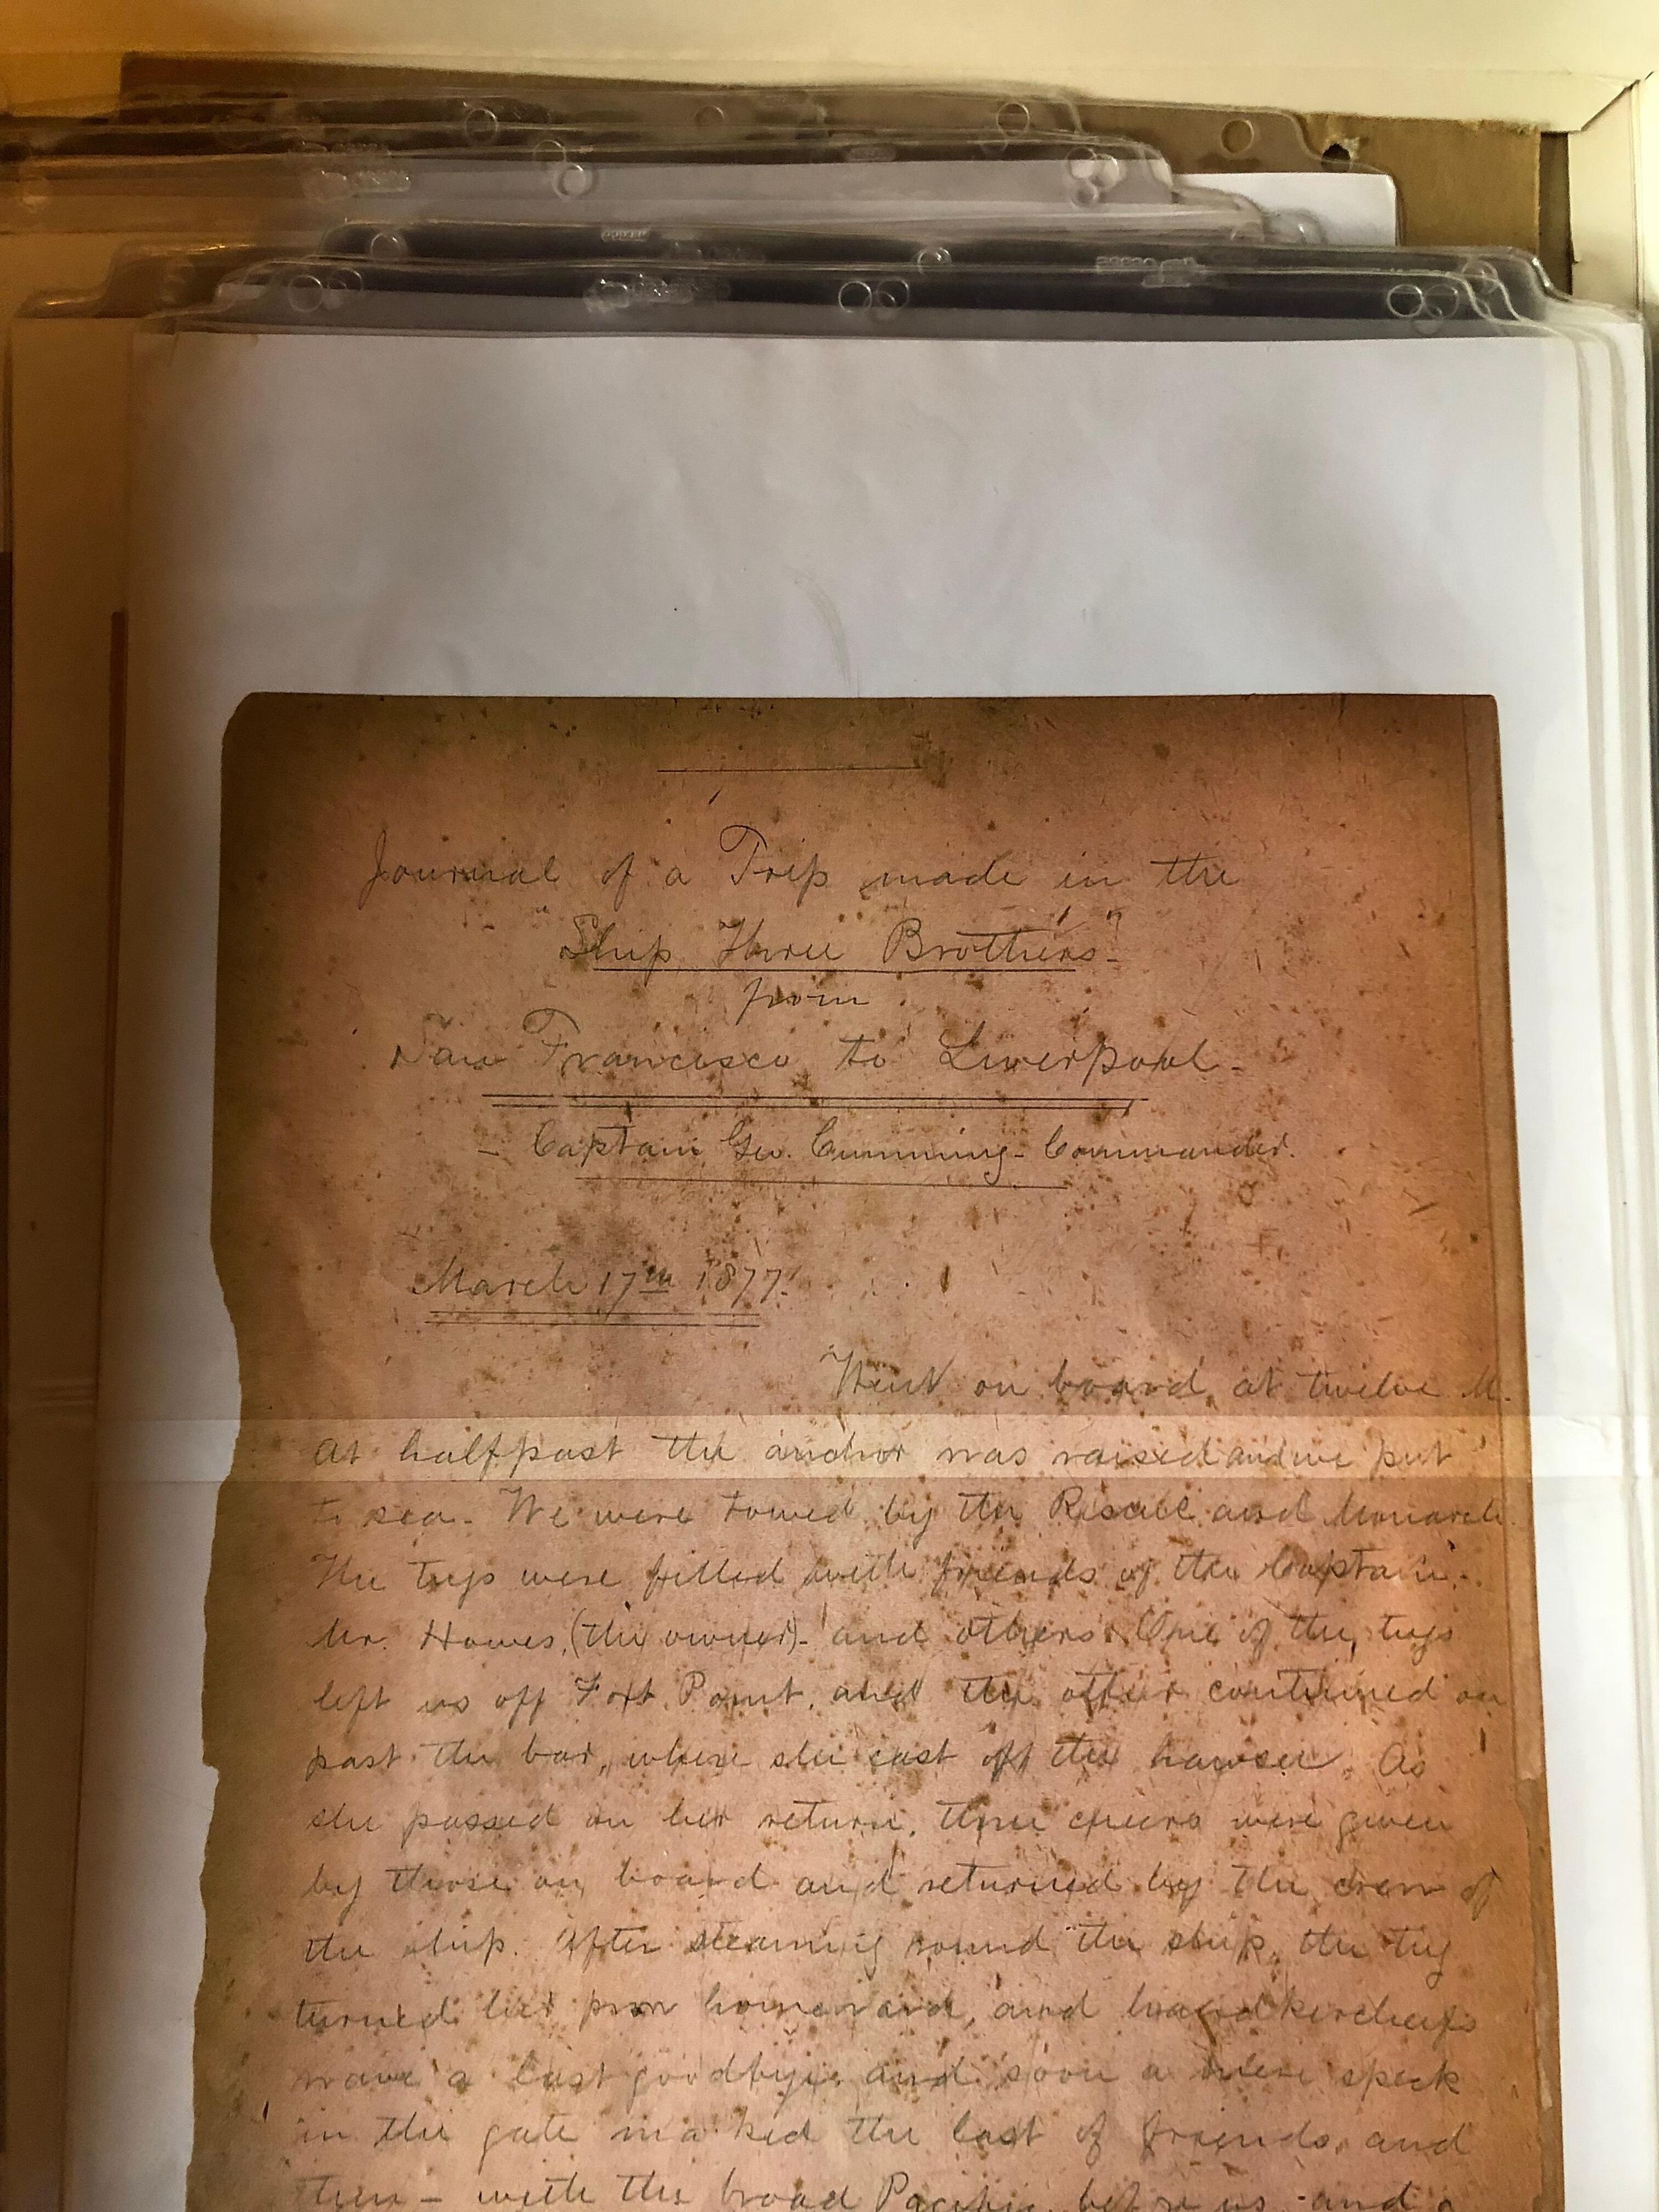 Journal of a Trip made in the
"Ship Three Brothers"
from
San Francisco to Liverpool -
- Captain Geo. Cumming - Commander.
March 17th 1877.
Went on board at twelve M.
At half past the anchor was raised and we put
to sea. We were towed by the Rescue and Monarch.
The tugs were filled with friends of the Captain -
Mr. Howes, (the owner) - and others. One of the tugs
left us off Fort Point, and the other continued on
past the bar, where she cast off the hawser. As
she passed on her return, three cheers were given
by those on board and returned by the crew of
the ship. After steaming round the ship, the tug
turned her prow homeward, and handkerchiefs
wave a last goodbye, and soon a mere speck
in the gate marked the last of friends, and
then - with the broad Pacific before us and a